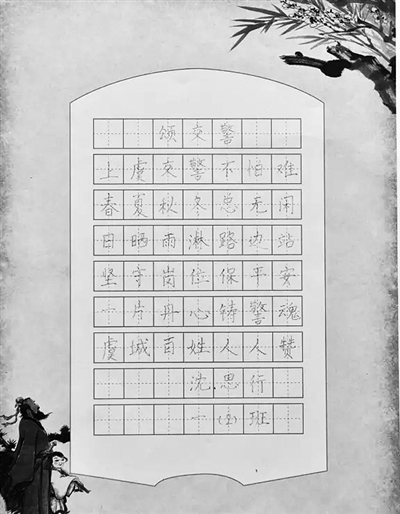 颂交警
上虞交警不怕难
春夏秋冬总无闲
日晒雨淋路边站
坚守岗位保平安
一片丹心铸警魂
虞城百姓人人赞
沈思行
一(2)班